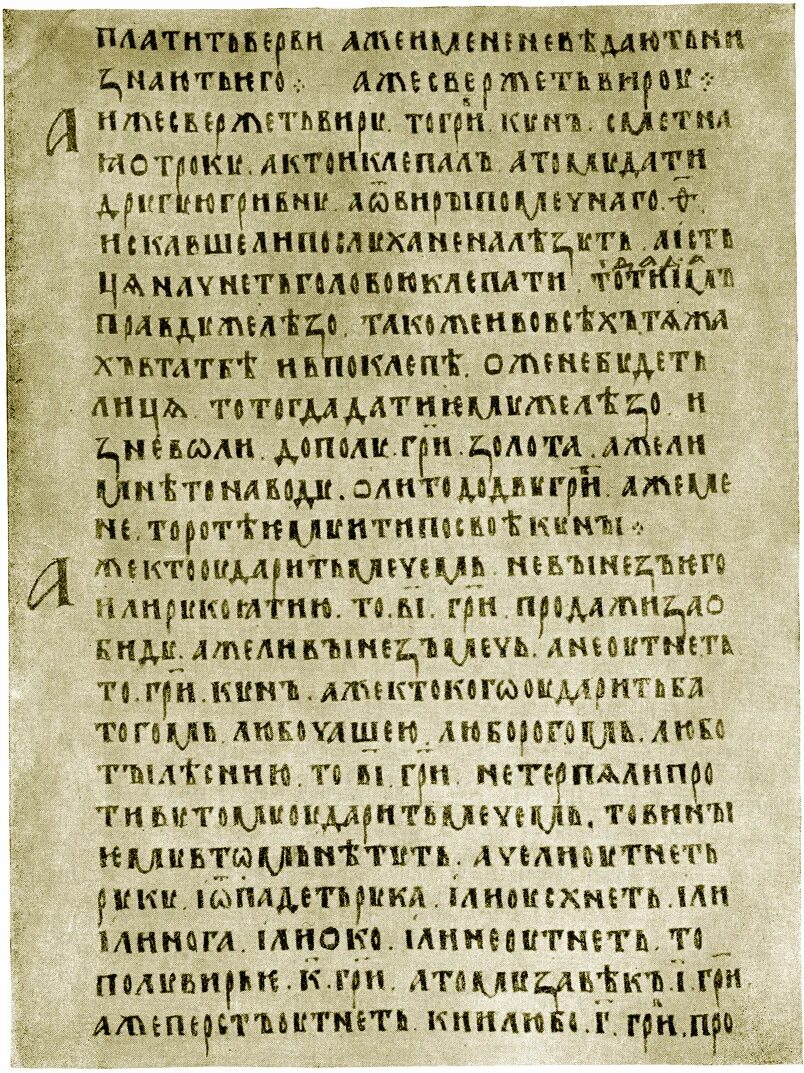 платитьверви ажеимененевѣдаютьни
знаютьѥго ⁘ ажесвержетьвироу ⁘
Аижесвержетьвиру. тогри҃. кунъ. сметна
ꙗотроку. актоиклепалъ. атомудати
другуюгривну. аѿвирыпомечнаго. ѳ҃.
искавшелипослуханеналѣзуть. аїстъ
цѧначнетьголовоюклепати. тотиїмъ
правдужелѣзо. такожеивовсѣхътѧжа
хъвтатбѣ ивпоклепѣ. оженебудеть
лицѧ. тотогдадатиѥмужелѣзо. и
зневѡли. дополу. гри҃. золота. ажели
мнѣтонаводу. олитододвугри҃. ажеме
не. торотѣѥмуитипосвоѣкуны ⁘
Ажектооударитьмечемь. невынезъѥго
илирукоꙗтию. то. в҃і. гри҃. продажизао
биду. ажеливынезъмечь. анеоутнеть
то. гри҃. кунъ. ажектокогѡоударитьба
тогомь. любочашею. люборогомь. любо
тылѣснию. то в҃і. гри҃. нетерпѧлипро
тивутомуоударитьмечемь. товины
ѥмувтѡмьнѣтуть. ачелиоутнеть
руку. іѿпадетьрука. їлиоусхнеть. їли
їлинога. їлиоко. їлинеоутнеть. то
полувирьѥ. к҃. гри҃. атомузавѣкъ. і҃. гри҃
ажеперстъоутнеть. киилюбо. г҃. гри҃. про